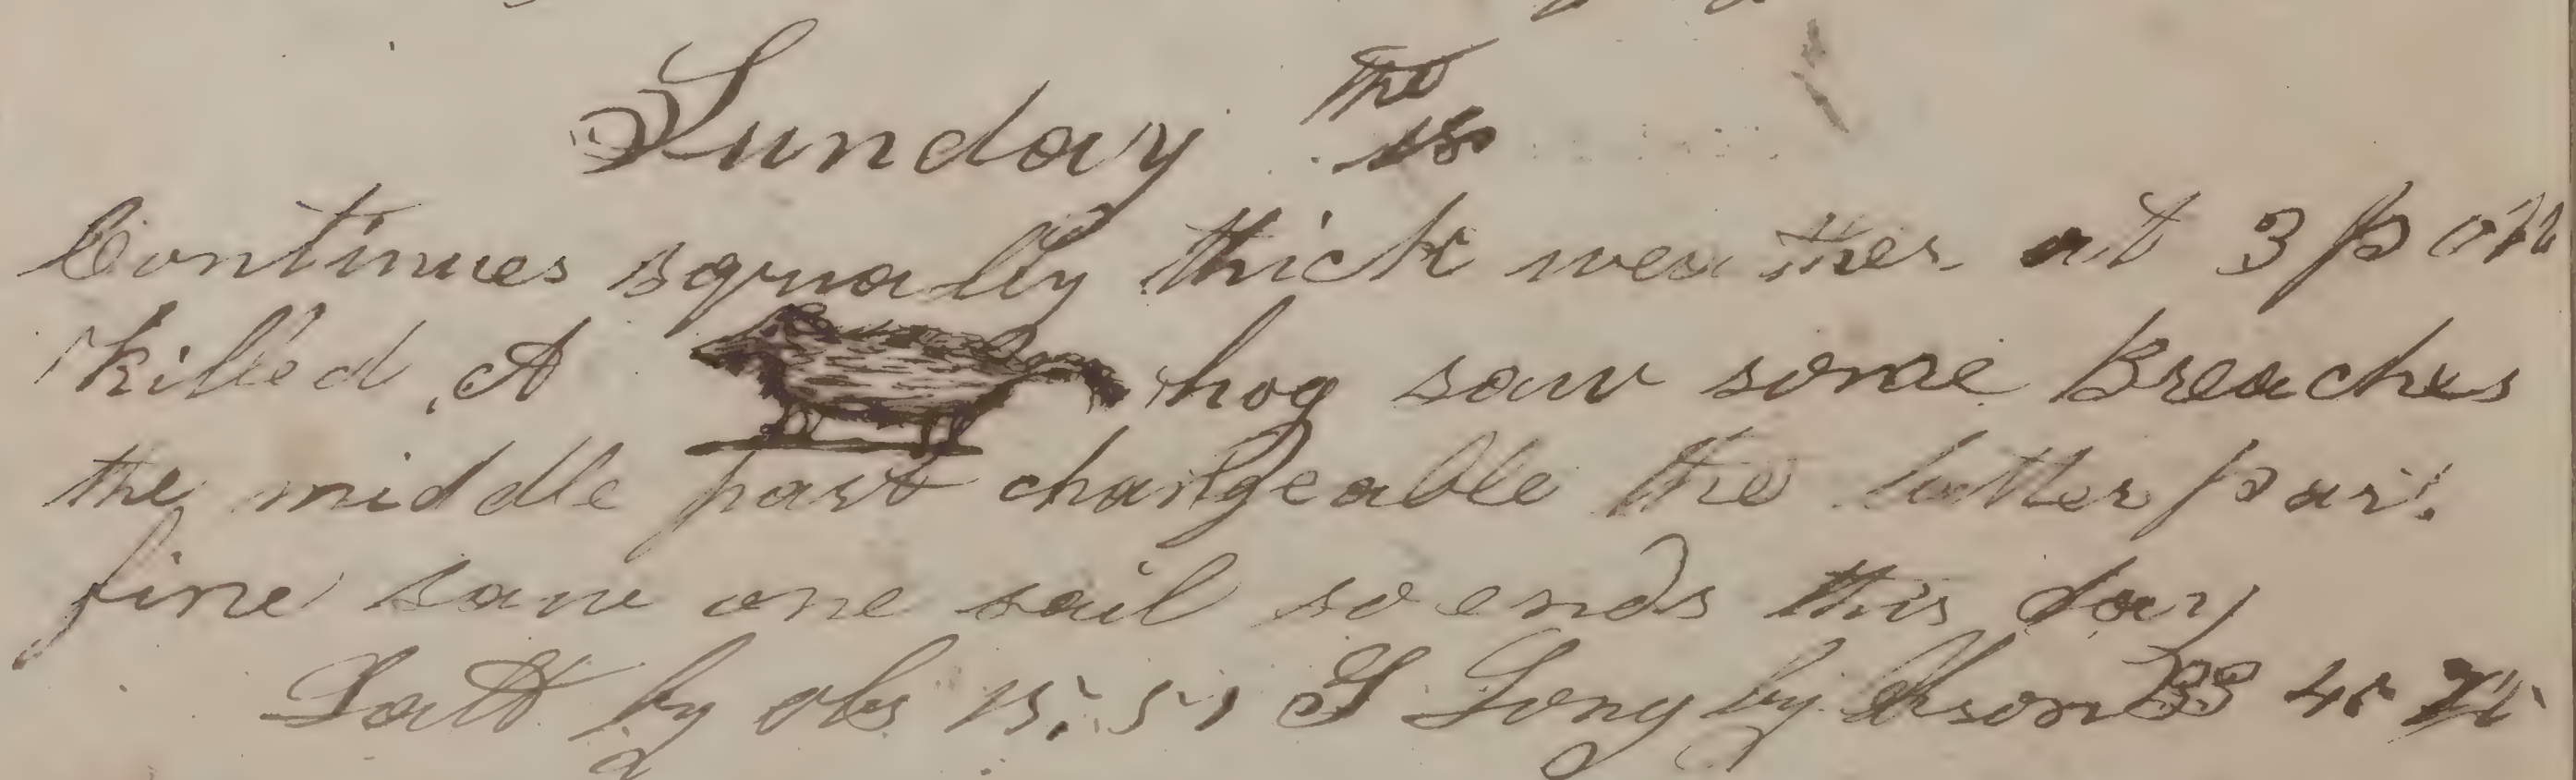 Sunday the 18
Continues squally thick weather at 3 P M
killed A hog saw some Breaches
the middle part changeable the latter part
fine saw one sail so ends this day
Latt by obs 15 : 51 S Long by Chron 38 45 W